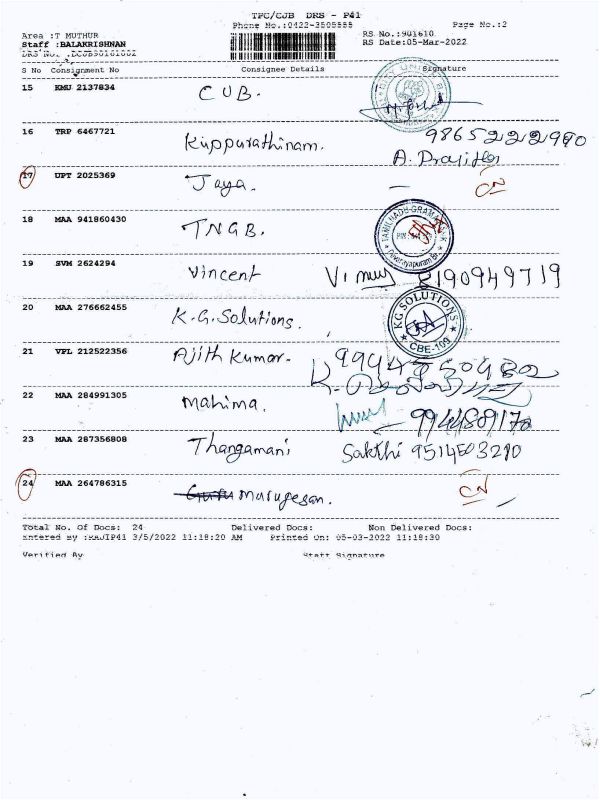 TPC/CJB DRS - P41
Phone No.:0422-3505555 Page No.:2
Area :T MUTHUR RS No.:901610
Staff :BALAKRISHNAN RS Date:05-Mar-2022
S No Consignment No Consignee Details Signature
15 KMU 2137834 CUB.
16 TRP 6467721 Kuppurathinam. 9865222990
A. Prajith
17 UPT 2025369 Jaya. — CN
18 MAA 941860430 TNGB.
19 SVM 2624294 Vincent 8190949719
20 MAA 276662455 K.G. Solutions.
KG SOLUTIONS
CBE-109
21 VPL 212522356 Ajith Kumar.
22 MAA 284991305 Mahima.
23 MAA 287356808 Thangamani Sakthi 9514503210
24 MAA 264786315 Murugesan. CN
Total No. Of Docs: 24 Delivered Docs: Non Delivered Docs:
Entered By :RAJIP41 3/5/2022 11:18:20 AM Printed On: 05-03-2022 11:18:30
Verified By Staff Signature